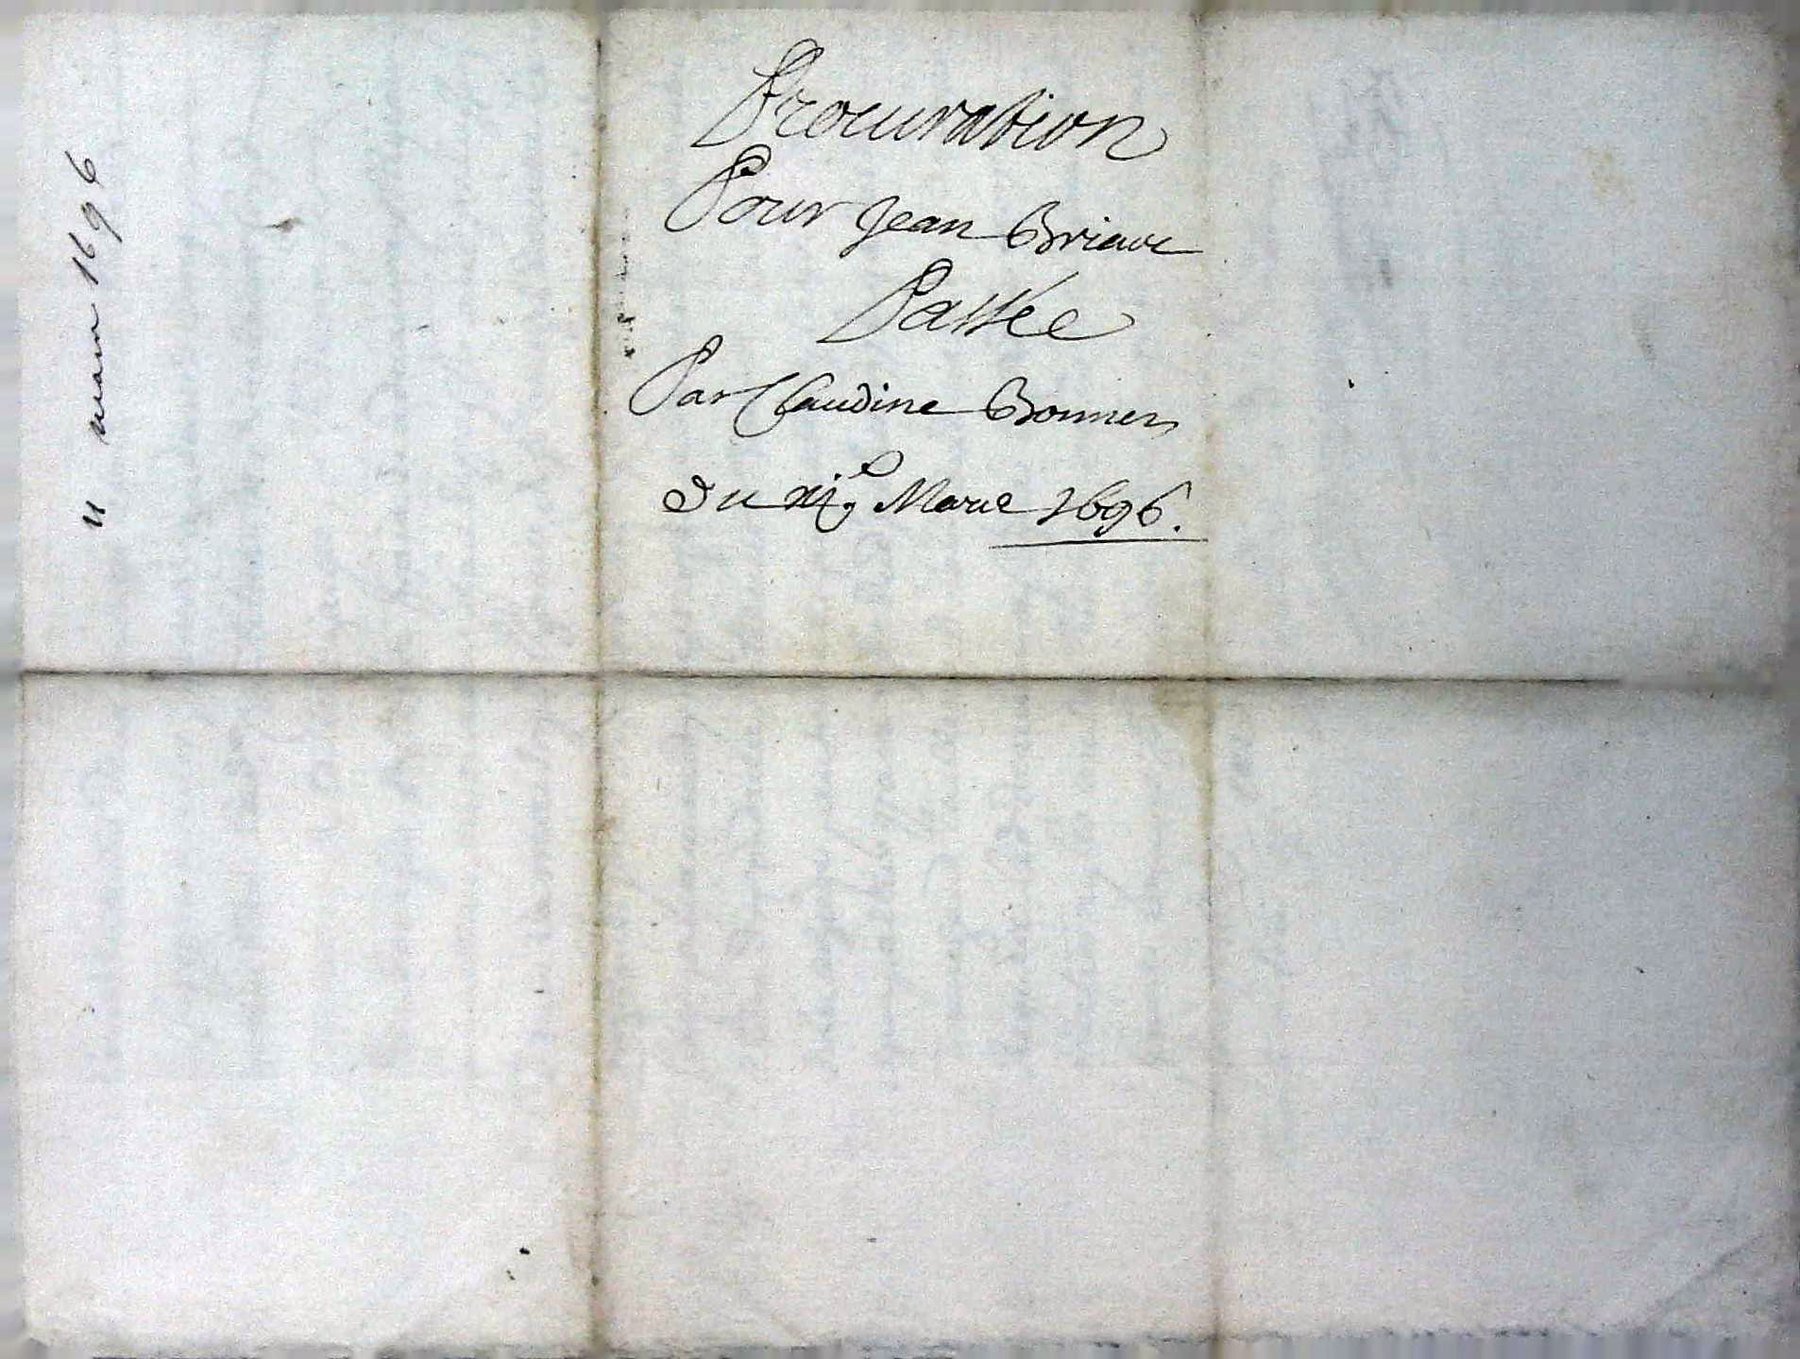 Procuration
Pour Jean Briave
Passée
Par Claudine Bonner
Du xj.e Mars 1696.
11 mars 1696